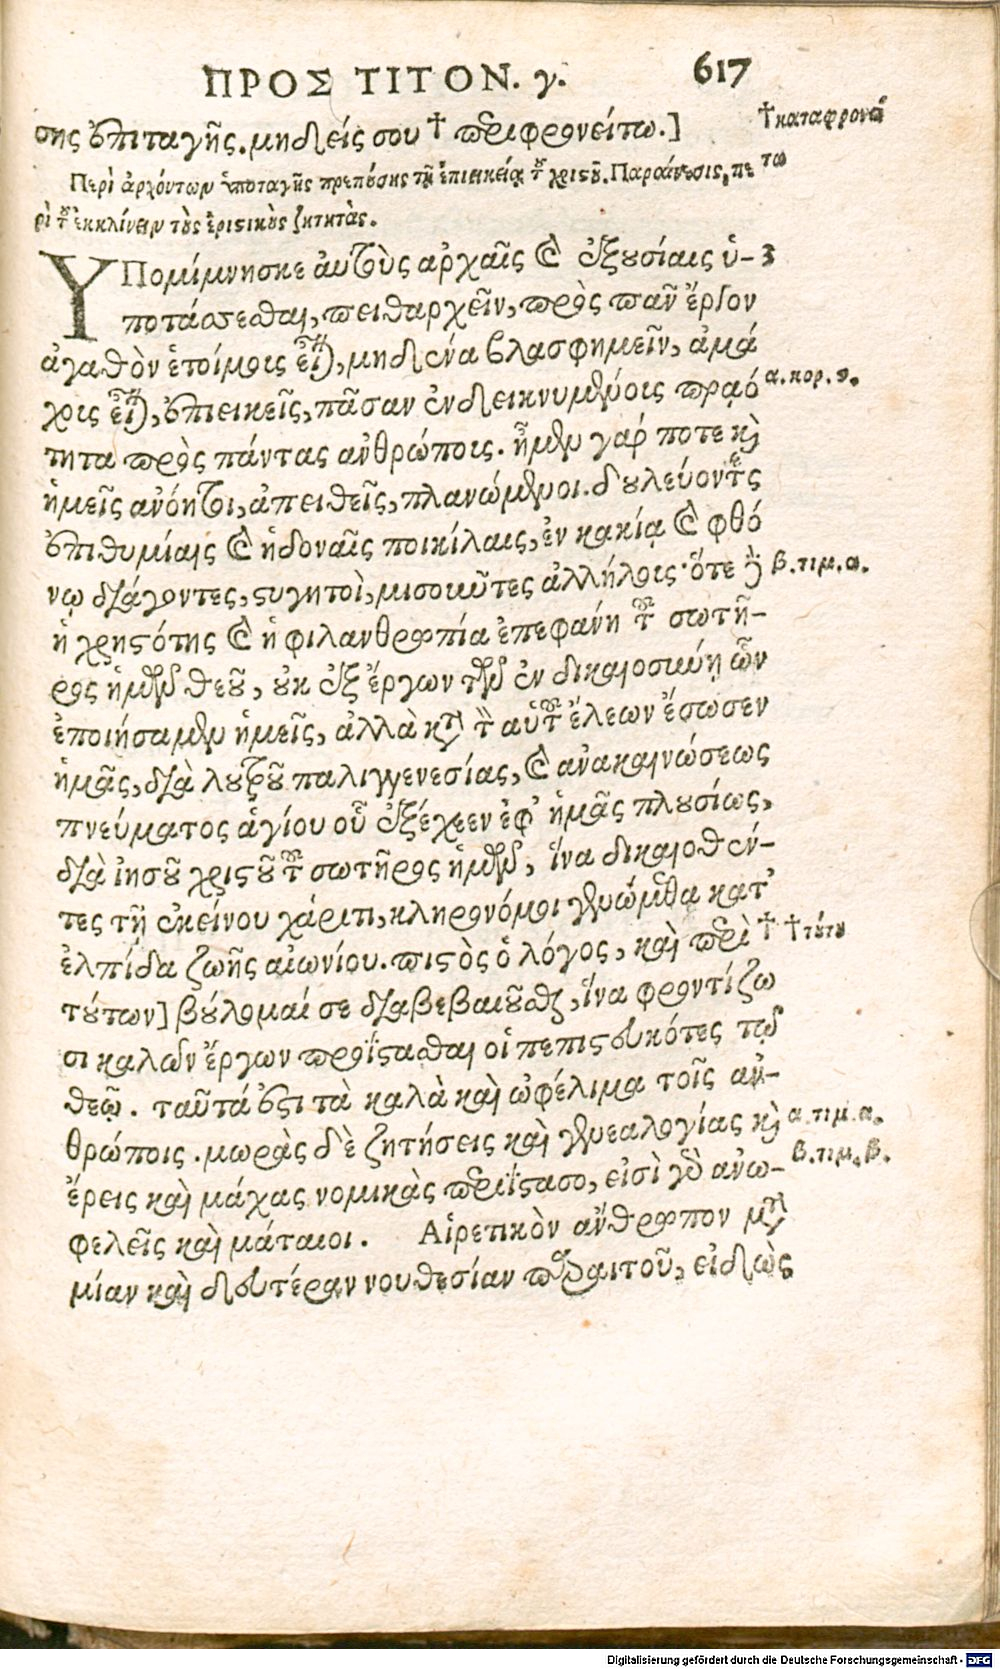 ΠΡΟΣ ΤΙΤΟΝ. γ. 617
σης ἐπιταγῆς. μηδείς σου † περιφρονείτω.] † καταφρονεί
τω
Περὶ ἀρχόντων ὑποταγῆς πρεπούσης τῇ ἐπιεικείᾳ τοῦ χριστοῦ. Παραίνεσις, πε
ρὶ τοῦ ἐκκλίνειν τοὺς ἐριστικοὺς ζητητὰς.
ΥΠομίμνησκε αὐτοὺς ἀρχαῖς καὶ ἐξουσίαις ὑ- 3
ποτάσσεσθαι, πειθαρχεῖν, πρὸς πᾶν ἔργον
ἀγαθὸν ἑτοίμοις εἶναι, μηδένα βλασφημεῖν, ἀμά
χοις εἶναι, ἐπιεικεῖς, πᾶσαν ἐνδεικνυμένοις πρᾳό α. κορ. θ.
τητα πρὸς πάντας ἀνθρώποις. ἦμεν γάρ ποτε καὶ
ἡμεῖς ἀνόητοι, ἀπειθεῖς, πλανώμενοι. δουλεύοντες
ἐπιθυμίαις καὶ ἡδοναῖς ποικίλαις, ἐν κακίᾳ καὶ φθό
νῳ διάγοντες, στυγητοὶ, μισοῦντες ἀλλήλοις· ὅτε δὲ β. τιμ. α.
ἡ χρηστότης καὶ ἡ φιλανθρωπία ἐπεφάνη τοῦ σωτῆ-
ρος ἡμῶν θεοῦ, οὐκ ἐξ ἔργων τῶν ἐν δικαιοσύνῃ ὧν
ἐποιήσαμεν ἡμεῖς, ἀλλὰ κατὰ τὸν αὐτοῦ ἔλεων ἔσωσεν
ἡμᾶς, διὰ λουτροῦ παλιγγενεσίας, καὶ ἀνακαινώσεως
πνεύματος ἁγίου οὗ ἐξέχεεν ἐφ' ἡμᾶς πλουσίως,
διὰ ἰησοῦ χριστοῦ τοῦ σωτῆρος ἡμῶν, ἵνα δικαιοθέν-
τες τῇ ἐκείνου χάριτι, κληρονόμοι γενώμεθα κατ'
ἐλπίδα ζωῆς αἰωνίου. πιστὸς ὁ λόγος, καὶ περὶ † † τούτου
τούτων] βούλομαί σε διαβεβαιοῦσθαι, ἵνα φροντίζω
σι καλῶν ἔργων προΐστασθαι οἱ πεπιστευκότες τῷ
θεῷ. ταῦτά ἐστι τὰ καλὰ καὶ ὠφέλιμα τοῖς ἀν-
θρώποις. μωρὰς δὲ ζητήσεις καὶ γενεαλογίας καὶ α. τιμ. α.
ἔρεις καὶ μάχας νομικὰς περιΐστασο, εἰσὶ γὰρ ἀνω- β. τιμ. β.
φελεῖς καὶ μάταιοι. Αἱρετικὸν ἄνθρωπον μετὰ
μίαν καὶ δευτέραν νουθεσίαν παραιτοῦ, εἰδὼς
Digitalisierung gefördert durch die Deutsche Forschungsgemeinschaft - DFG